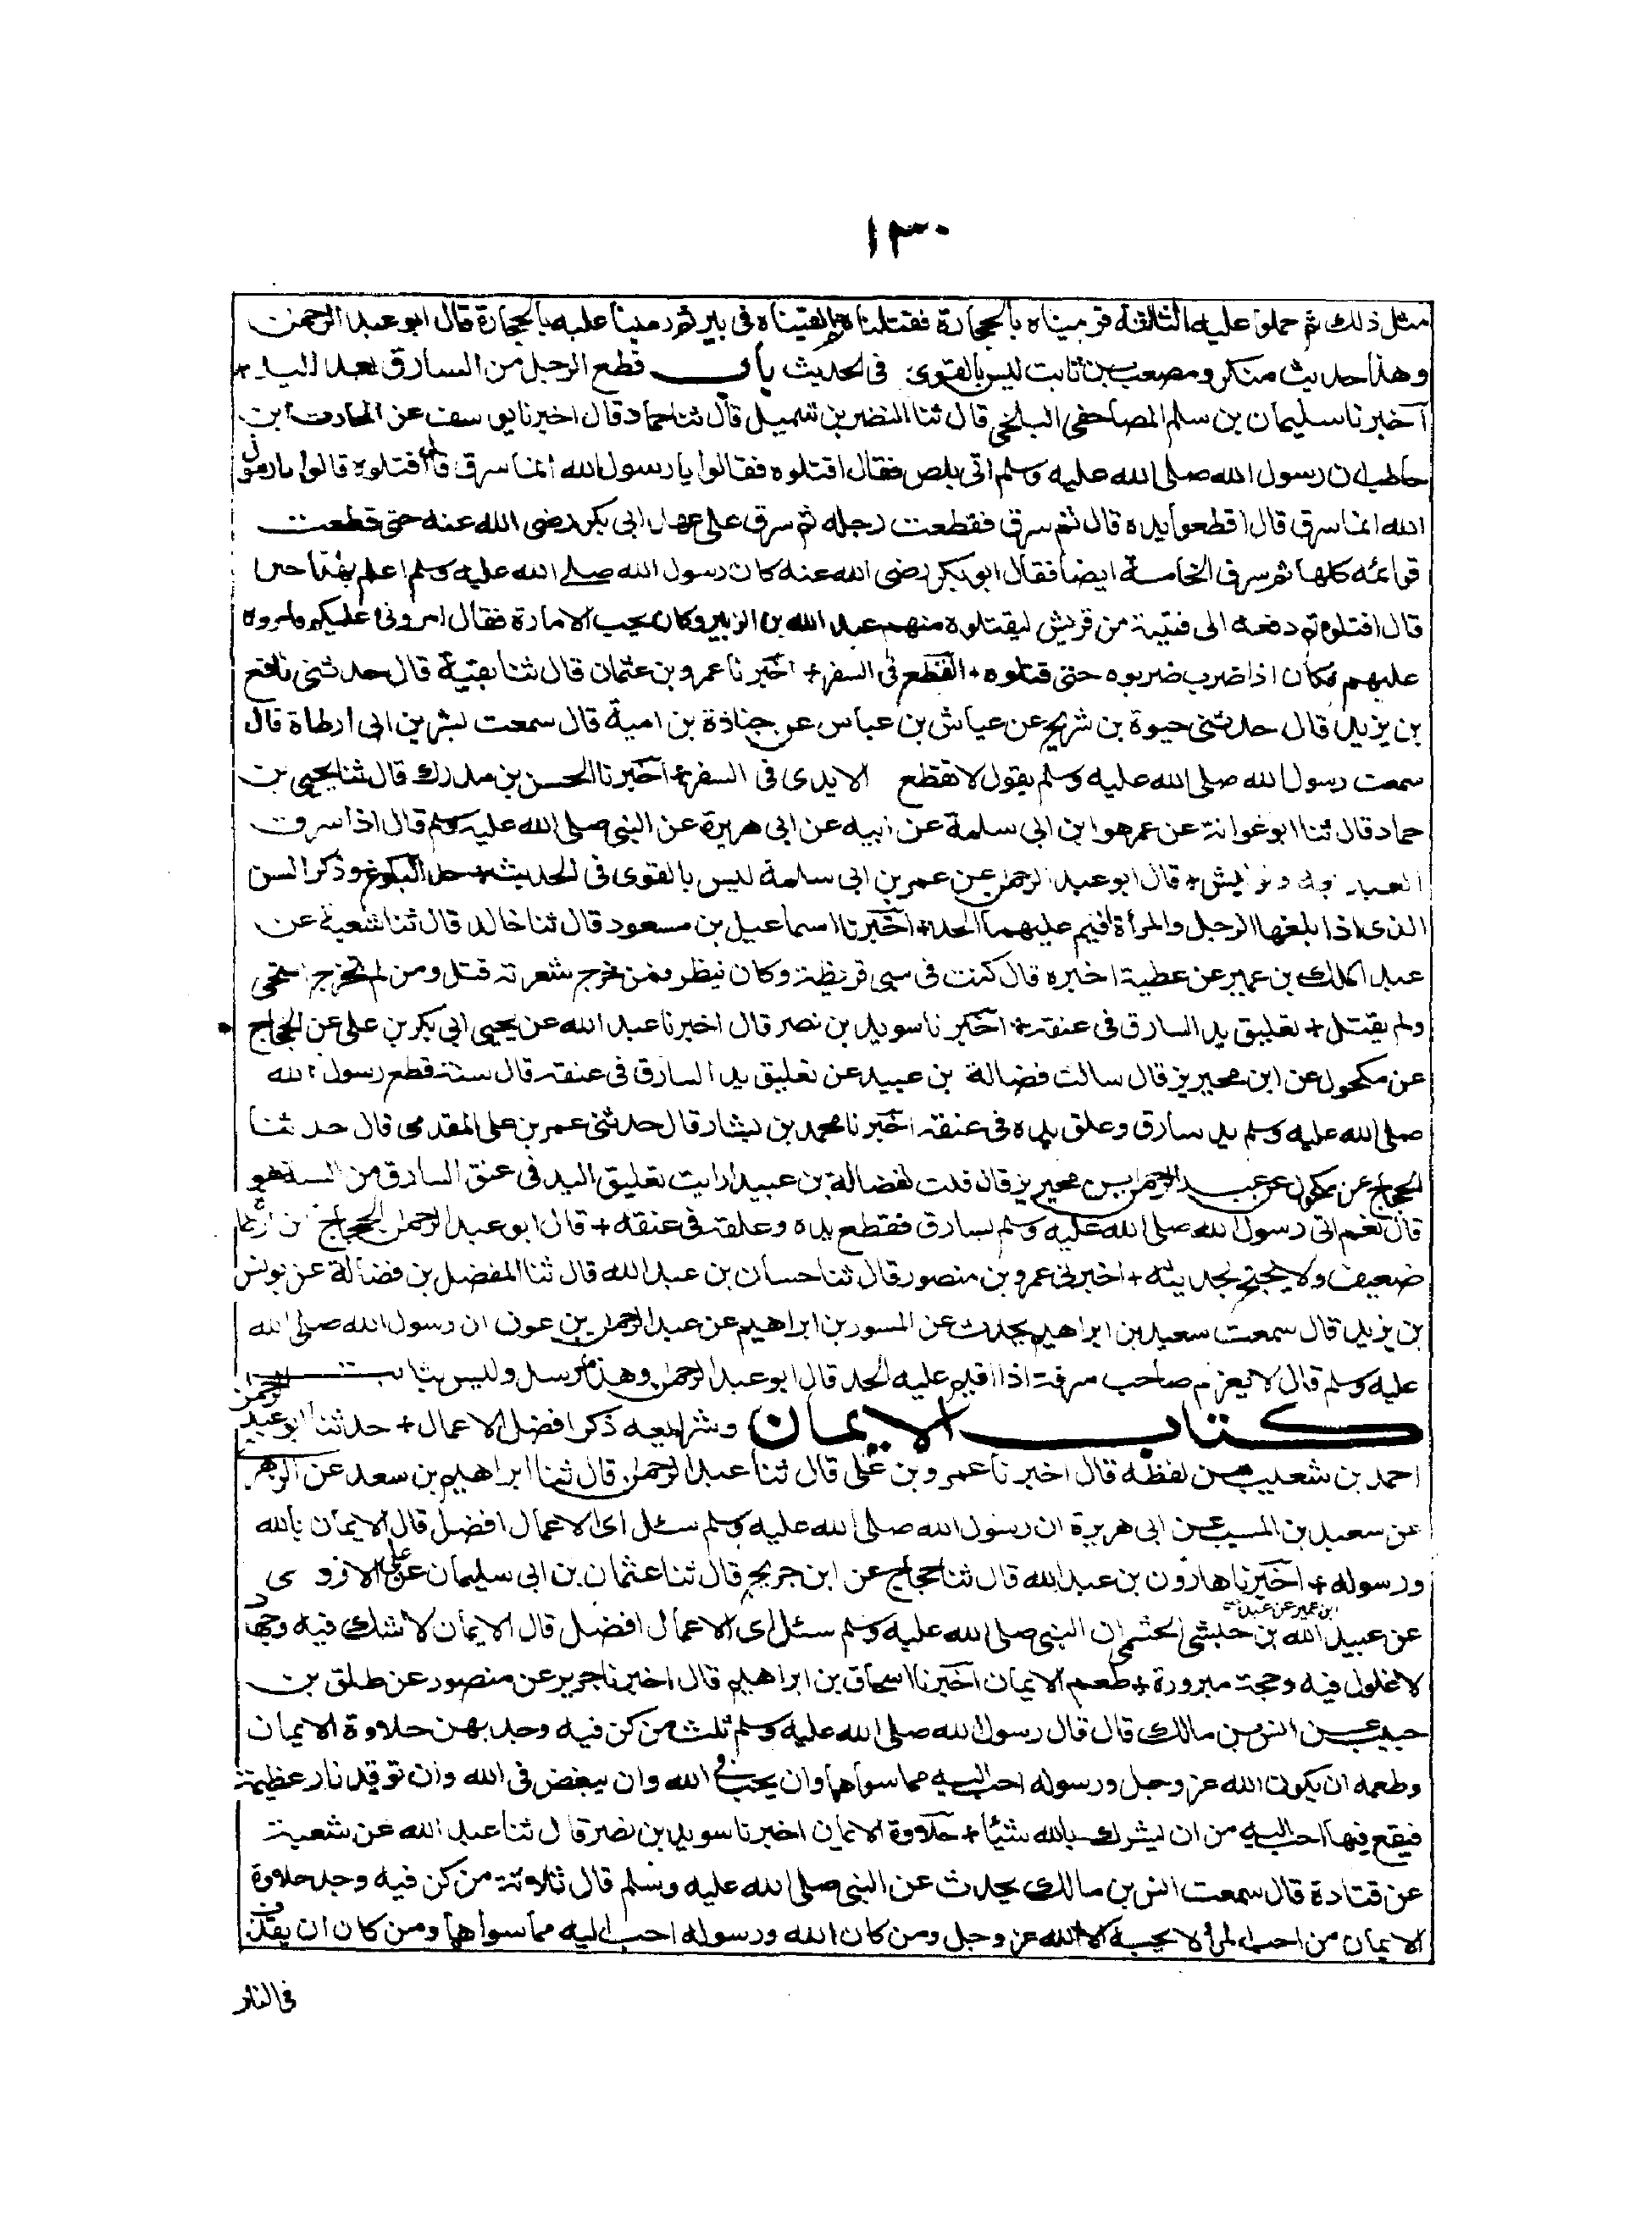 ١٣٠
مثل ذلك ثم حملوا عليه الثالثة فرميناه بالحجارة فقتلناه ثم القيناه فى بير ثم رمينا عليه بالحجارة قال ابو عبد الرحمن
وهذا حديث منكر ومصعب بن ثابت ليس بالقوى فى الحديث باب قطع الرجل من السارق بعد اليد +
آخبرنا سليمان بن سلم المصاحفى البلخى قال ثنا النضر بن شميل قال ثنا حماد قال اخبرنا يوسف عن الحارث ابن
حاطب ان رسول الله صلى الله عليه وسلم اتى بلص فقال اقتلوه فقالوا يا رسول الله انما سرق قال اقتلوه قالوا يا رسول
الله انما سرق قال اقطعوا يده قال ثم سرق فقطعت رجله ثم سرق على عهد ابى بكر رضى الله عنه حتى قطعت
قوائمه كلها ثم سرق الخامسة ايضا فقال ابو بكر رضى الله عنه كان رسول الله صلى الله عليه وسلم اعلم بهذا حين
قال اقتلوه ثم دفعه الى فتية من قريش ليقتلوه منهم عبد الله بن الزبير وكان يحب الامارة فقال امرونى عليكم فامروه
عليهم فكان اذا ضرب ضربوه حتى قتلوه + القطع فى السفر + اخبرنا عمرو بن عثمان قال ثنا بقية قال حدثنى نافع
بن يزيد قال حدثنى حيوة بن شريح عن عياش بن عباس عن جنادة بن امية قال سمعت بشر بن ابى ارطاة قال
سمعت رسول الله صلى الله عليه وسلم يقول لا تقطع الايدى فى السفر + اخبرنا الحسن بن مدرك قال ثنا يحيى بن
حماد قال ثنا ابو عوانة عن عمر هو ابن ابى سلمة عن ابيه عن ابى هريرة عن النبى صلى الله عليه وسلم قال اذا سرق
العبد فبعه ولو بنش + قال ابو عبد الرحمن عن عمر بن ابى سلمة ليس بالقوى فى الحديث + حد البلوغ وذكر السن
الذى اذا بلغها الرجل والمرأة اقيم عليهما الحد + اخبرنا اسماعيل بن مسعود قال ثنا خالد قال ثنا شعبة عن
عبد الملك بن عمير عن عطية اخبره قال كنت فى سبى قريظة وكان ينظر فمن خرج شعرته قتل ومن لم تخرج استحى
ولم يقتل + تعليق يد السارق فى عنقه + اخبرنا سويد بن نصر قال اخبرنا عبد الله عن يحيى ابى بكر بن على عن الحجاج
عن مكحول عن ابن محيريز قال سالت فضالة بن عبيد عن تعليق يد السارق فى عنقه قال سنة قطع رسول الله
صلى الله عليه وسلم يد سارق وعلق يده فى عنقه اخبرنا محمد بن بشار قال حدثنى عمر بن على المقدمى قال حدثنا
الحجاج عن مكحول عن عبد الرحمن بن محيريز قال قلت لفضالة بن عبيد ارايت تعليق اليد فى عنق السارق من السنة هو
قال نعم اتى رسول الله صلى الله عليه وسلم بسارق فقطع يده وعلقه فى عنقه + قال ابو عبد الرحمن الحجاج بن ارطا
ضعيف ولا يحتج بحديثه + اخبرنى عمرو بن منصور قال ثنا حسان بن عبد الله قال ثنا المفضل بن فضالة عن يونس
بن يزيد قال سمعت سعيد بن ابراهيم يحدث عن المسور بن ابراهيم عن عبد الرحمن بن عوف ان رسول الله صلى الله
عليه وسلم قال لا يغرم صاحب سرقة اذا اقيم عليه الحد قال ابو عبد الرحمن وهذا مرسل وليس بثابت
كتاب الايمان وشرايعه ذكر افضل الاعمال + حدثنا ابو عبد الرحمن
احمد بن شعيب من لفظه قال اخبرنا عمرو بن على قال ثنا عبد الرحمن قال ثنا ابراهيم بن سعد عن الزهر
عن سعيد بن المسيب عن ابى هريرة ان رسول الله صلى الله عليه وسلم سئل اى الاعمال افضل قال الايمان بالله
ورسوله + اخبرنا هارون بن عبد الله قال ثنا حجاج عن ابن جريج قال ثنا عثمان بن ابى سليمان عن على الازدى
ابن عمير عن عبيد
عن عبيد الله بن حبشى الخثعمى ان النبى صلى الله عليه وسلم سئل اى الاعمال افضل قال الايمان لا شك فيه وجهاد
لا غلول فيه وحجة مبرورة + طعم الايمان اخبرنا اسحاق بن ابراهيم قال اخبرنا جرير عن منصور عن طلق بن
حبيب عن انس بن مالك قال قال رسول الله صلى الله عليه وسلم ثلث من كن فيه وجد بهن حلاوة الايمان
وطعمه ان يكون الله عز وجل ورسوله احب اليه مما سواهما وان يحب فى الله وان يبغض فى الله وان توقد نار عظيمة
فيقع فيها احب اليه من ان يشرك بالله شيئا + حلاوة الايمان اخبرنا سويد بن نصر قال ثنا عبد الله عن شعبة
عن قتادة قال سمعت انس بن مالك يحدث عن النبى صلى الله عليه وسلم قال ثلاثة من كن فيه وجد حلاوة
الايمان من احب المرأ لا يحبه الا لله عز وجل ومن كان الله ورسوله احب اليه مما سواهما ومن كان ان يقذف
فى النار